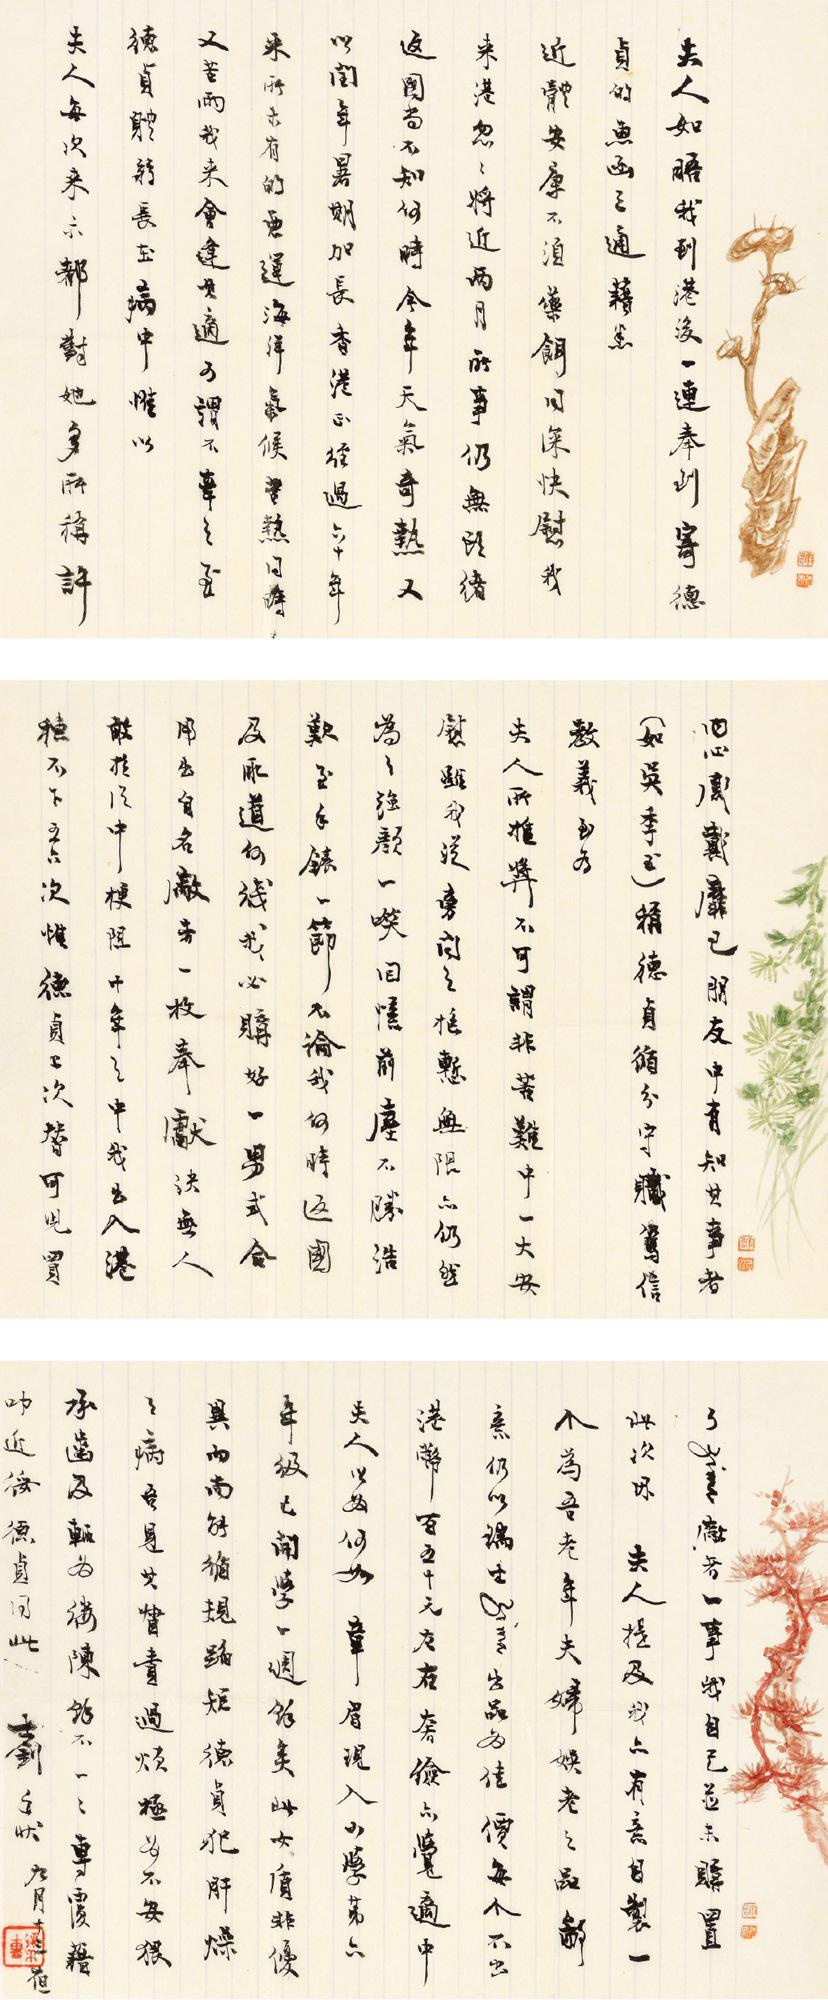 夫人如晤我到港後一連奉到寄德
貞的魚函三通藉悉
近體安康不須藥餌同深快慰我
来港忽忽將近兩月所事仍無頭緒
返國尚不知何時今年天氣奇熱又
以閏年暑期加長香港正經過六十年
来所未有的惡運海洋氣候苦熱同時
又苦雨我来會逢其適可謂不幸之至
德貞體弱長在病中惟以
夫人每次来示都對她多所稱許
心感戴靡已朋友中有知其事者
(如吳季玉)稱德貞循分守職篤信
教義至為
夫人所推獎不可謂非苦難中一大安
慰雖我從旁聞之抵慙無限亦仍然
為之強顏一笑回憶前塵不勝浩
歎至手錶一節不論我何時返國
及取道何綫我必購好一男式合
用出自名廠者一枚奉獻決無人
敢於從中梗阻十年之中我出入港
穗不下五六次惟德貞上次替可兒買
廠者一事我自己並未購置
此次承 夫人提及我亦有意自製一
个為吾老年夫婦娛老之品鄙
意仍以瑞士 出品為佳價每个不出
港幣百五十元左右奢儉亦覺適中
夫人以為何如 章眉現入小學第六
年級已開學一週餘矣此女質非優
異而尚能循規蹈矩德貞犯肝燥
之病吾見其嘖責過煩極為不安猥
承齒及輒為縷陳餘不一一專覆藉
叩近綏德貞同此
士釗手狀 九月十三夜